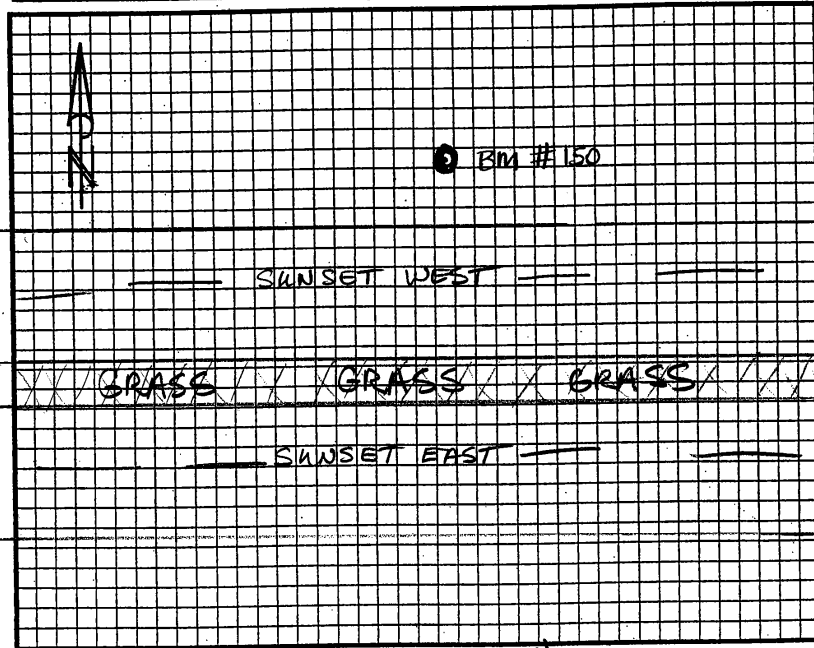 N
BM # 150
SUNSET WEST
GRASS GRASS GRASS
SUNSET EAST